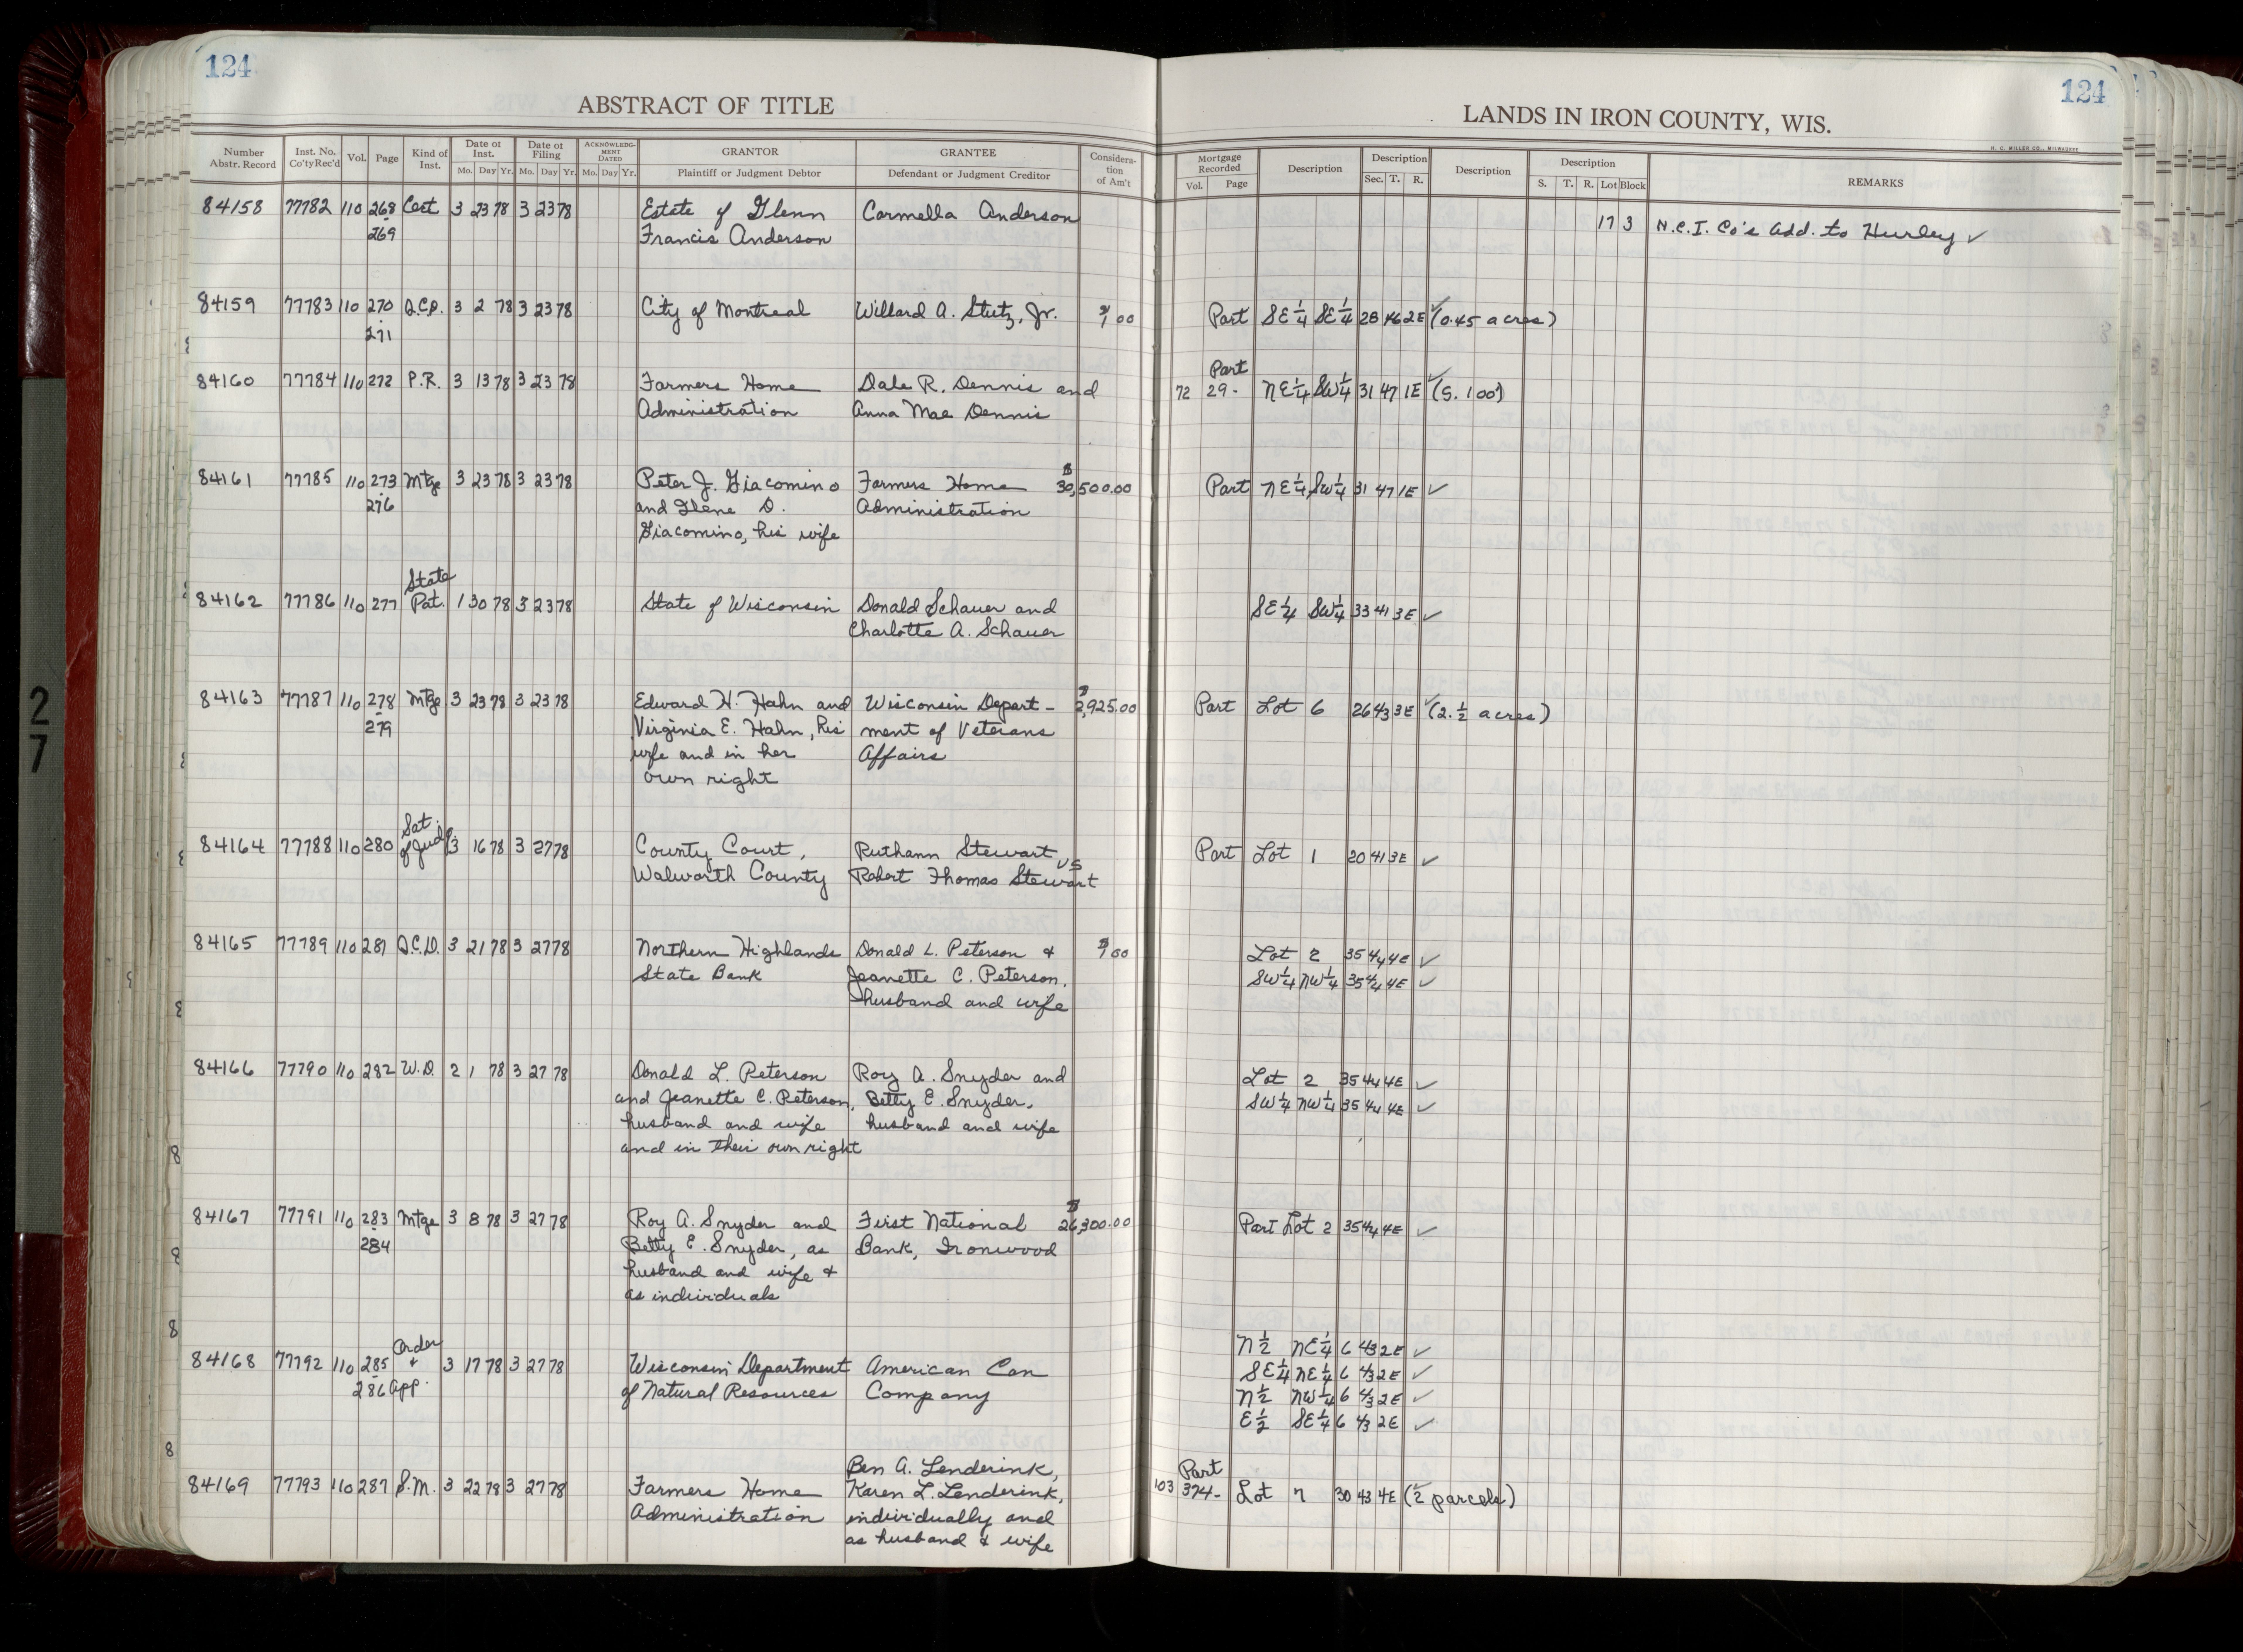 124
124
ABSTRACT OF TITLE
LANDS IN IRON COUNTY, WIS.
H. C. MILLER CO., MILWAUKEE
Number Abstr. Record | Inst. No. Co'ty Rec'd | Vol. | Page | Kind of Inst. | Date of Inst. Mo. Day Yr. | Date of Filing Mo. Day Yr. | ACKNOWLEDGMENT DATED Mo. Day Yr. | GRANTOR Plaintiff or Judgment Debtor | GRANTEE Defendant or Judgment Creditor | Consideration of Am't | Mortgage Recorded Vol. Page | Description | Description Sec. T. R. | Description | Description S. T. R. Lot Block | REMARKS
84158 77782 110 268 Cert 3 23 78 3 23 78 Estate of Glenn Carmella Anderson 17 3 N.C.I. Co's Add. to Hurley ✓
269 Francis Anderson
84159 77783 110 270 Q.C.D. 3 2 78 3 23 78 City of Montreal Willard A. Stutz, Jr. $1 00 Part SE 1/4 SE 1/4 28 46 2E ✓ (0.45 acres)
271
Part
84160 77784 110 272 P.R. 3 13 78 3 23 78 Farmers Home Dale R. Dennis and 72 29- NE 1/4 SW 1/4 31 47 1E ✓ (S. 100')
Administration Anna Mae Dennis
84161 77785 110 273 Mtge 3 23 78 3 23 78 Peter J. Giacomino Farmers Home $30,500.00 Part NE 1/4 SW 1/4 31 47 1E ✓
276 and Ilene D. Administration
Giacomino, his wife
State
84162 77786 110 277 Pat. 1 30 78 3 23 78 State of Wisconsin Donald Schauer and SE 1/4 SW 1/4 33 41 3E ✓
Charlotte A. Schauer
84163 77787 110 278 Mtge 3 23 78 3 23 78 Edward H. Hahn and Wisconsin Depart- $2,925.00 Part Lot 6 26 43 3E ✓ (2.1/2 acres)
279 Virginia E. Hahn, his ment of Veterans
wife and in her Affairs
own right
Sat.
84164 77788 110 280 of Judg 3 16 78 3 27 78 County Court, Ruthann Stewart vs Part Lot 1 20 41 3E ✓
Walworth County Robert Thomas Stewart
84165 77789 110 281 Q.C.D. 3 21 78 3 27 78 Northern Highlands Donald L. Peterson & $1 00 Lot 2 35 44 4E ✓
State Bank Jeanette C. Peterson, SW 1/4 NW 1/4 35 44 4E ✓
husband and wife
84166 77790 110 282 W.D. 2 1 78 3 27 78 Donald L. Peterson Roy A. Snyder and Lot 2 35 44 4E ✓
and Jeanette C. Peterson, Betty E. Snyder, SW 1/4 NW 1/4 35 44 4E ✓
husband and wife husband and wife
and in their own right
84167 77791 110 283 Mtge 3 8 78 3 27 78 Roy A. Snyder and First National $26,300.00 Part Lot 2 35 44 4E ✓
284 Betty E. Snyder, as Bank, Ironwood
husband and wife &
as individuals
Order N 1/2 NE 1/4 6 43 2E ✓
84168 77792 110 285 & 3 17 78 3 27 78 Wisconsin Department American Can SE 1/4 NE 1/4 6 43 2E ✓
286 App. of Natural Resources Company N 1/2 NW 1/4 6 43 2E ✓
E 1/2 SE 1/4 6 43 2E ✓
Ben A. Lenderink, Part
84169 77793 110 287 S.M. 3 22 78 3 27 78 Farmers Home Karen L. Lenderink, 103 374- Lot 7 30 43 4E ✓ (2 parcels)
Administration individually and
as husband & wife
27